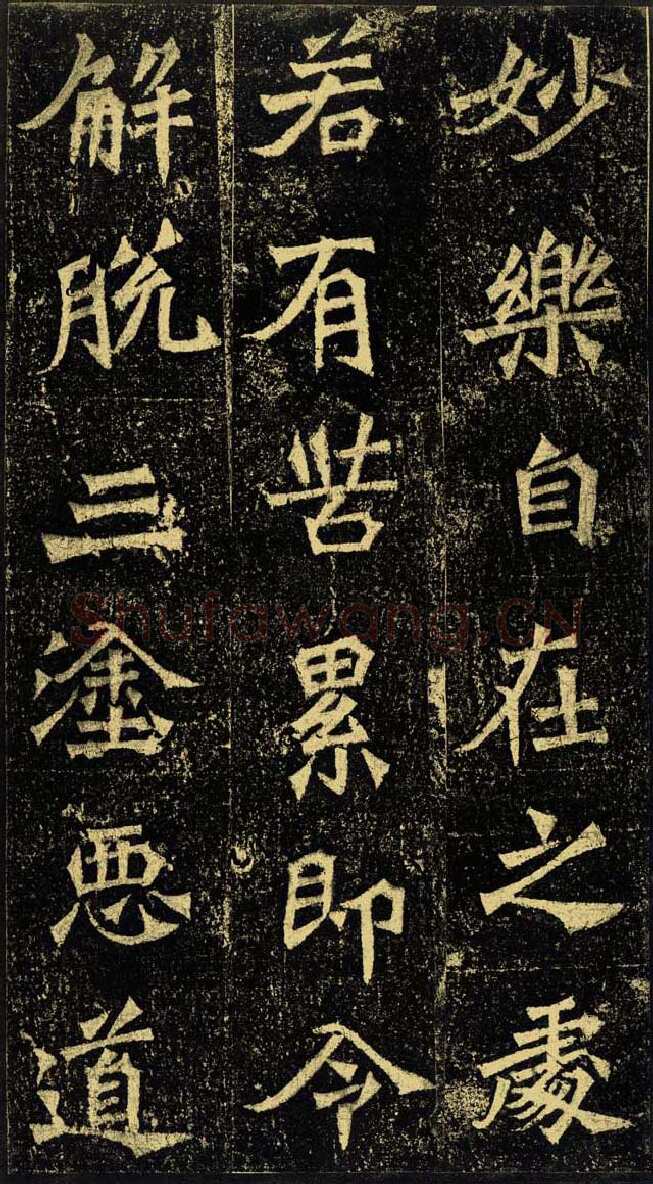 妙樂自在之處
若有苦累即令
解脫三塗惡道
Shufawang.CN